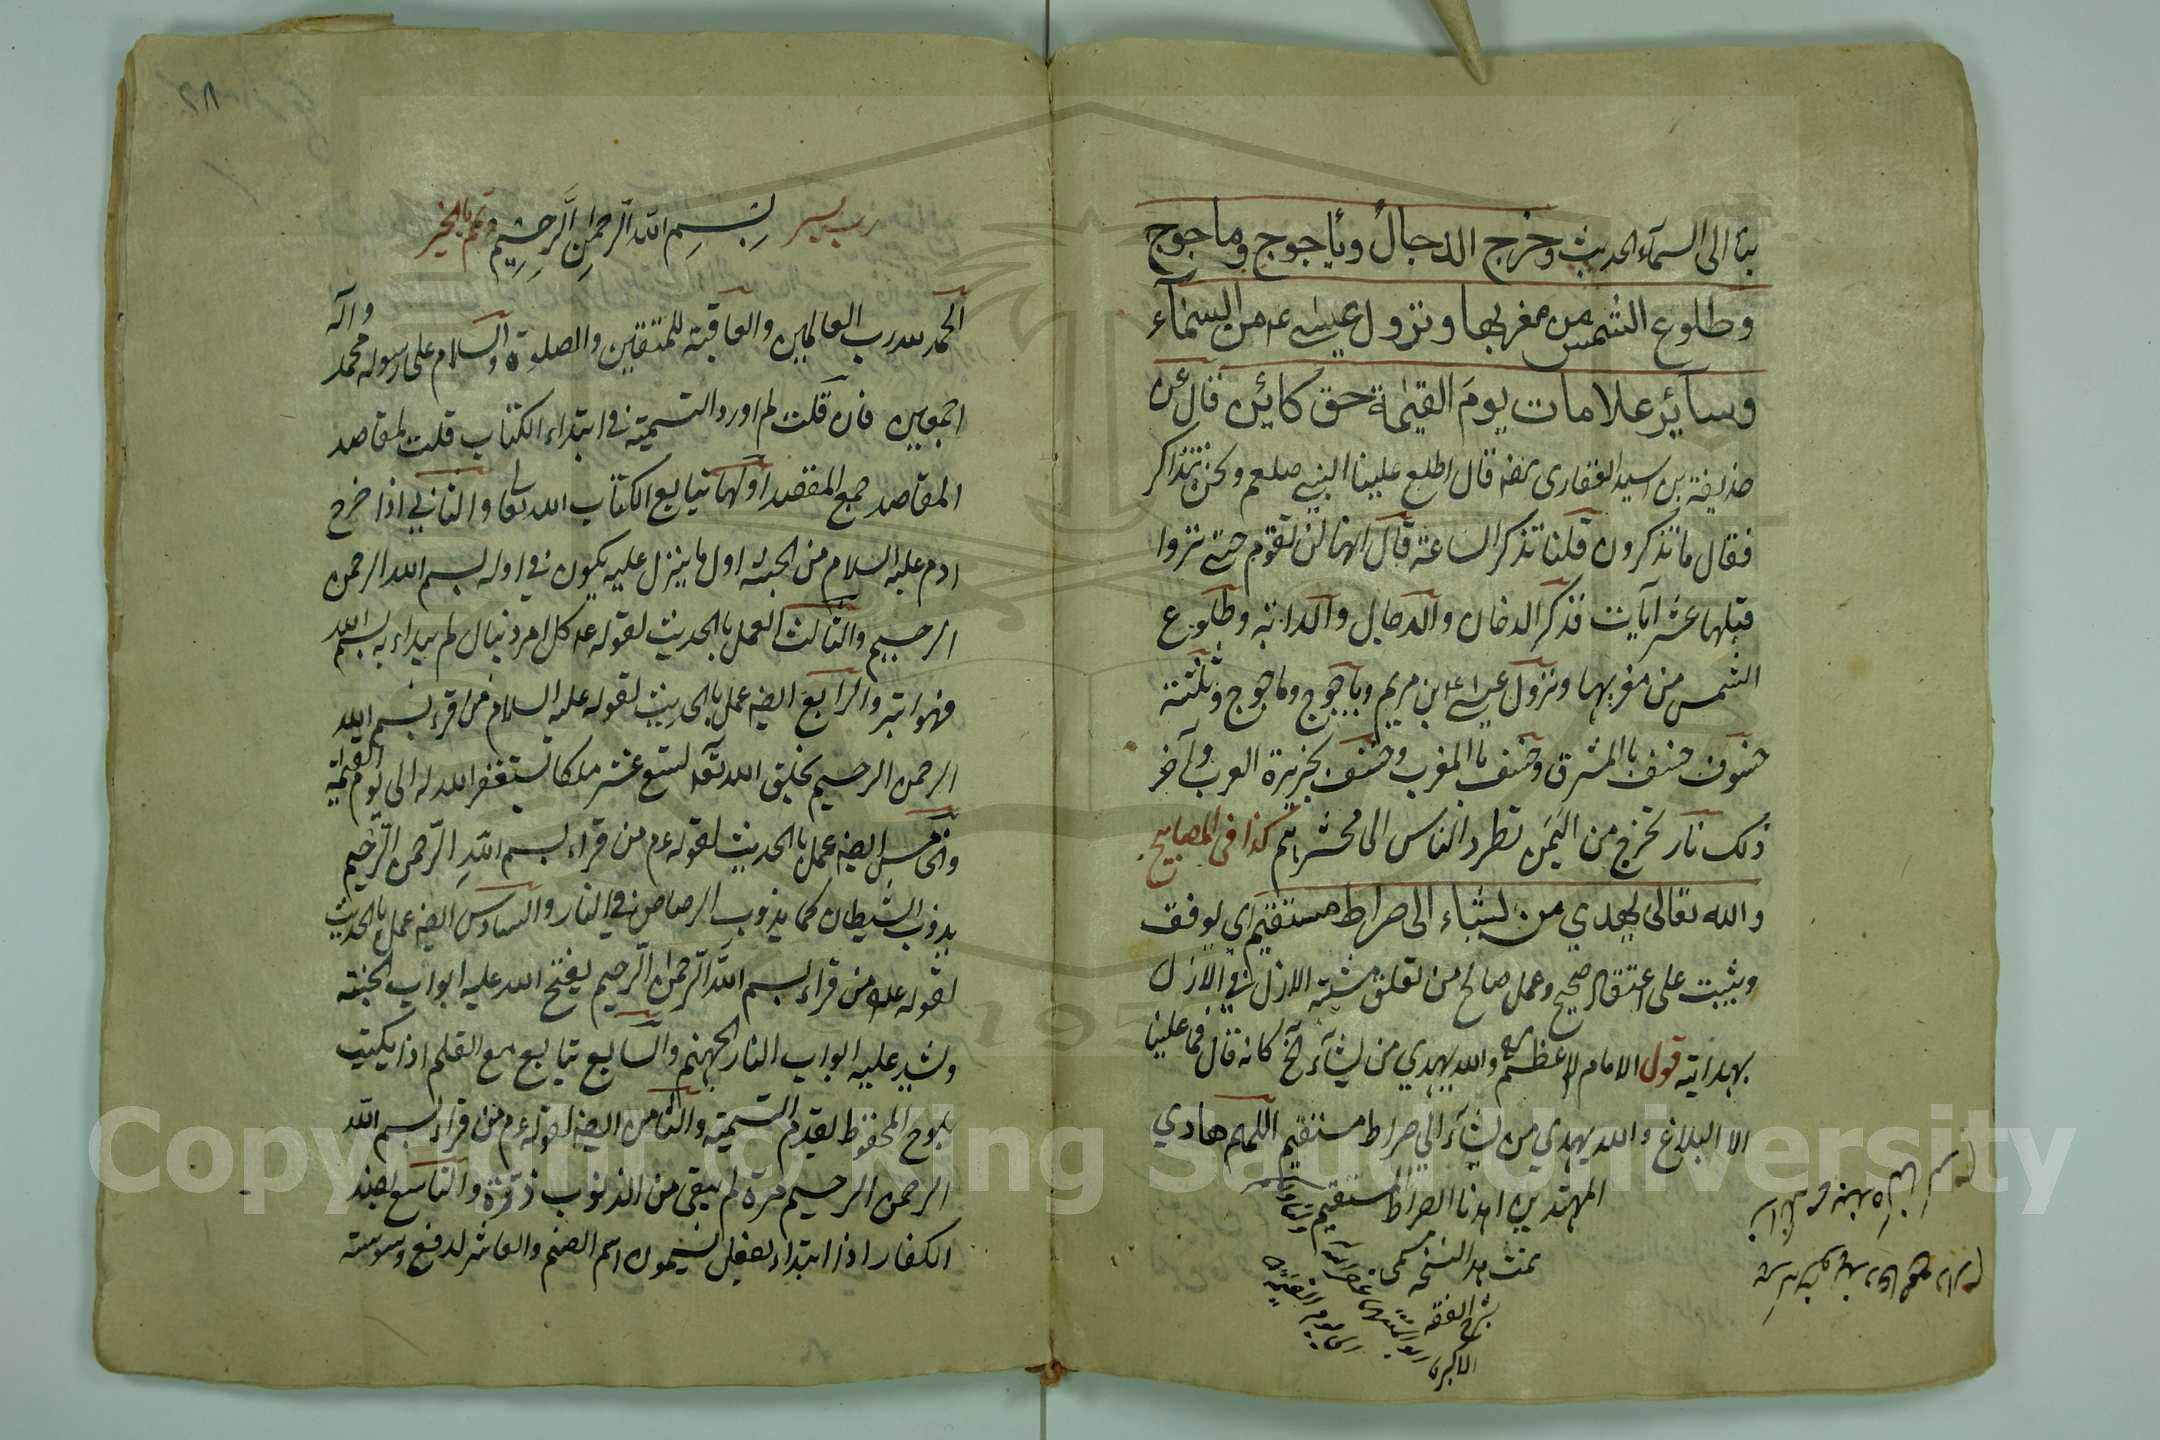 بناء الى السمآء الحديث وخرج الدجال ويأجوج وماجوج
وطلوع الشمس من مغربها ونزول عيسى عم من السمآء
وسآئر علامات يوم القيمة حق كائن قال عن
حذيفة بن اسيد الغفارى رضه قال اطلع علينا النبي صلعم ونحن نتذاكر
فقال ما تذكرون قلنا نذكر الساعة قال انها لن تقوم حتى تروا
قبلها عشر آيات فذكر الدخان والدجال والدابة وطلوع
الشمس من مغربها ونزول عيسى ابن مريم وياجوج وماجوج وثلثة
خسوف خسف بالمشرق وخسف بالمغرب وخسف بجزيرة العرب وآخر
ذلك نار تخرج من اليمن تطرد الناس الى محشرهم كذا فى المصابيح
والله تعالى يهدي من يشاء الى صراط مستقيم اي يوفق
ويثبت على اعتقاد صحيح وعمل صالح من تعلق مشيته الازل في الازل
بهدايته قول الامام الاعظم والله يهدي من يشآء الخ كانه قال فما علينا
الا البلاغ والله يهدي من يشآء الى صراط مستقيم اللهم هادي
المهتدين اهدنا الصراط المستقيم
تمت هذا النسخة مسمى
بشرح الفقه
الاكبر
الى يوم القيمة
٨٢
رب يسر بسم الله الرحمن الرحيم وتمم بالخير
الحمد لله رب العالمين والعاقبة للمتقين والصلوة والسلام على رسوله محمد وآله
اجمعين فان قلت لم اورد التسمية في ابتداء الكتاب قلت لمقاصد
المقاصد جمع المقصد اولها تيابع الكتاب الله تعا والثاني اذا خرج
ادم عليه السلام من الجنة اول ما ينزل عليه يكون في اوله بسم الله الرحمن
الرحيم والثالث العمل بالحديث لقوله عم كل امر ذيبال لم يبداء به بسم الله
فهو ابتر والرابع ايضه عمل بالحديث لقوله عليه السلام من قرء بسم الله
الرحمن الرحيم يخلق الله تعا لتسع عشر ملكا يستغفر الله له الى يوم القيمة
والخامس ايضه عمل بالحديث لقوله عم من قراء بسم الله الرحمن الرحيم
يذوب الشيطان كما يذوب الرصاص في النار والسادس ايضه عمل بالحديث
لقوله علم من قراء بسم الله الرحمن الرحيم يفتح الله عليه ابواب الجنة
ويشد عليه ابواب النار الجهنم والسابع تيابع مع القلم اذا يكتب
بلوح المحفوظ تقدم التسمية والثامن ايضه لقوله عم من قراء بسم الله
الرحمن الرحيم مرة لم يبقى من الذنوب ذرة والتاسع لضد
الكفار اذا ابتداء لفعل يسمون اسم الصنم والعاشر لدفع وسوسة
Copyright © King Saud University